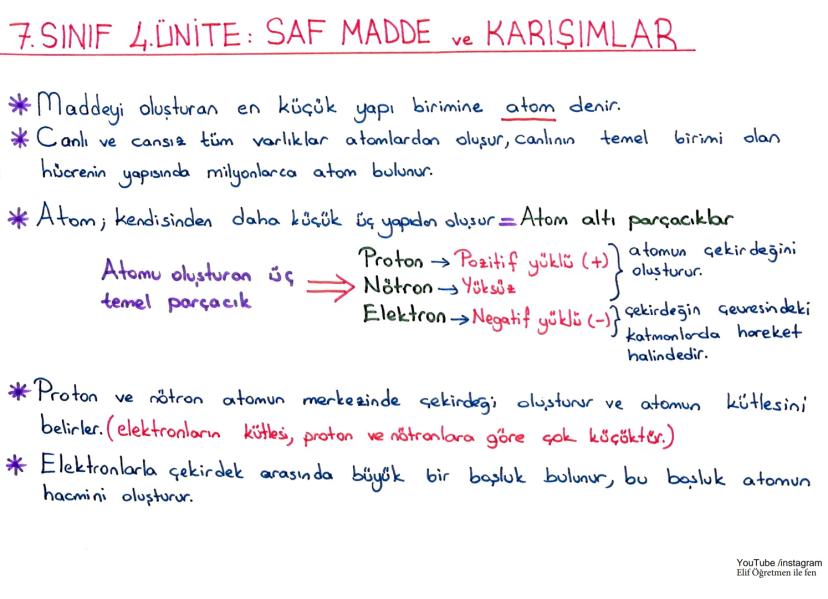 7.SINIF 4.ÜNİTE: SAF MADDE ve KARIŞIMLAR
* Maddeyi oluşturan en küçük yapı birimine atom denir.
* Canlı ve cansız tüm varlıklar atomlardan oluşur, canlının temel birimi olan
hücrenin yapısında milyonlarca atom bulunur.
* Atom; kendisinden daha küçük üç yapıdan oluşur = Atom altı parçacıklar
Atomu oluşturan üç
temel parçacık
⇒
Proton → Pozitif yüklü (+)
Nötron → Yüksüz
} atomun çekirdeğini
oluşturur.
Elektron → Negatif yüklü (-)
} çekirdeğin çevresindeki
katmanlarda hareket
halindedir.
* Proton ve nötron atomun merkezinde çekirdeği oluşturur ve atomun kütlesini
belirler. (elektronların kütlesi, proton ve nötronlara göre çok küçüktür.)
* Elektronlarla çekirdek arasında büyük bir boşluk bulunur, bu boşluk atomun
hacmini oluşturur.
YouTube /instagram
Elif Öğretmen ile fen